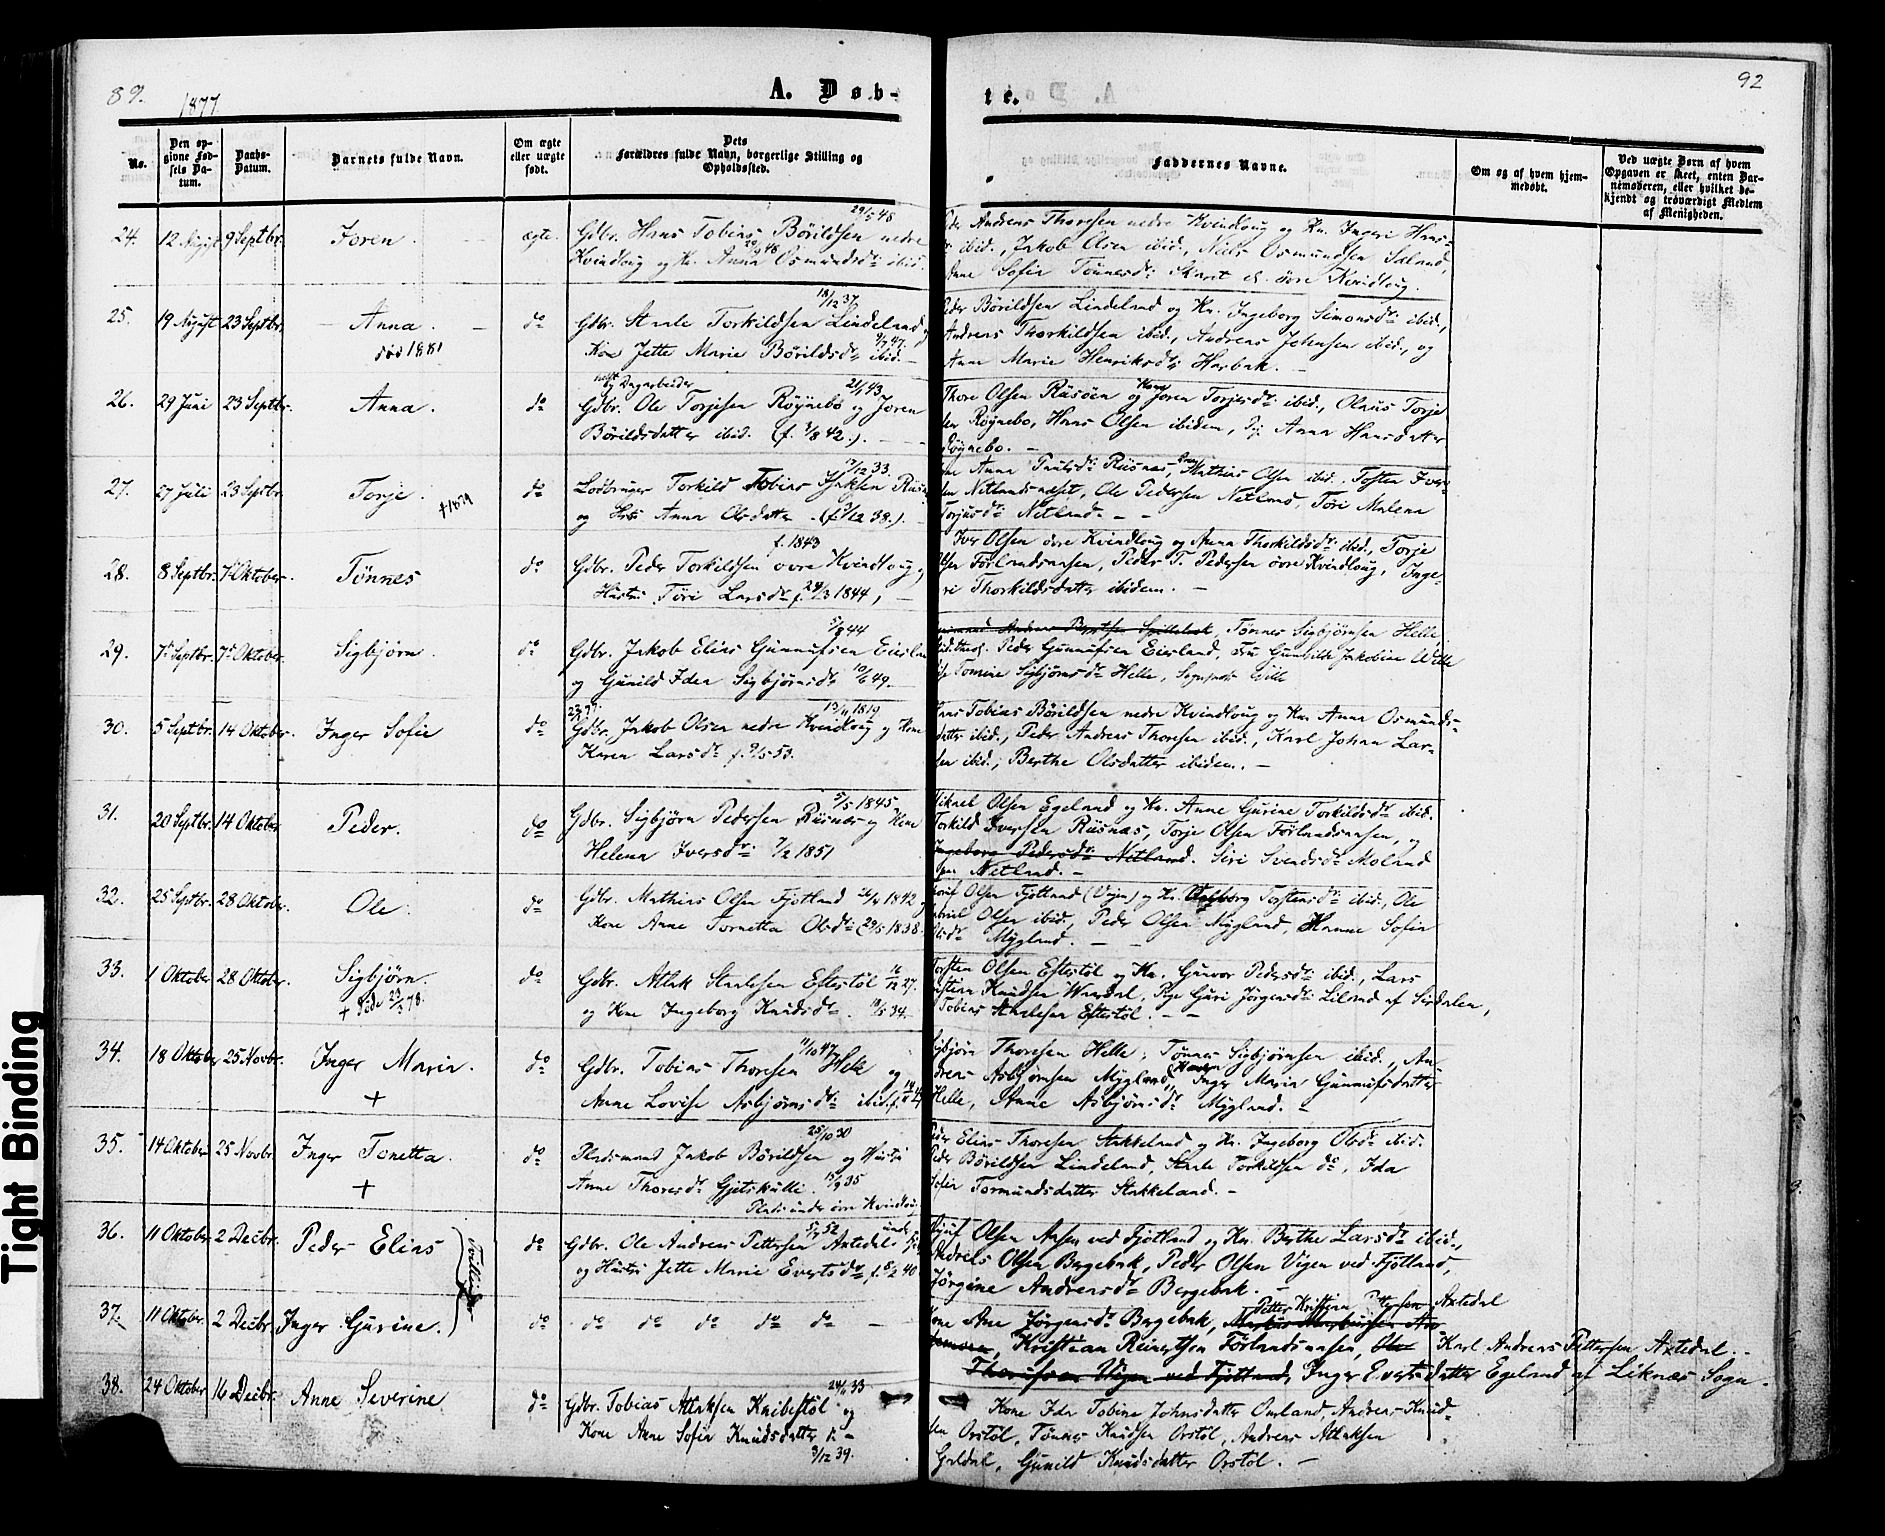 89.
1877
A. Døb-
te.
92
No.
Den op-
givne Fød-
sels Da-
tum.
Daabs-
Datum.
Barnets fulde Navn.
Om ægte
eller uægte
født.
Dets
Forældres fulde Navn, borgerlige Stilling og
Opholdssted.
Faddernes Navne.
Om og af hvem hjem-
medøbt.
Ved uægte Børn af hvem
Opgaven er skeet, enten Bar-
nemoderen, eller hvilket be-
kjendt og troværdigt Medlem
af Menigheden.
24. 12 August 9 Septbr. Joren. ægte. Gdbr. Hans Tobias Børildsen nedre 29/5 48
Kvindloug og K. Anna Osmundsdr. ibid.
Andreas Thoresen nedre Kvindloug og Kn. Ingeri Hans-
ibid., Jakob Olsen ibid., Niels Osmundsen Saland,
Anne Sofie Tønnesdr. Skaret og øvre Kvindloug.
25. 19 August 23 Septbr. Anna. do Gdbr. Staale Torkildsen Lindeland 18/12 37
død 1881
Kone Jette Marie Børildsdr. ibid. 9/7 47.
Peder Børildsen Lindeland og Kn. Ingeborg Simonsdr. ibid.,
Andreas Thorkildsen ibid., Andreas Johnsen ibid., og
Anne Marie Henriksdr. Harbak.
26. 29 Juni 23 Septbr. Anna. do og Dagarbeider
Gdbr. Ole Torjesen Røynebø og Joren 21/1 43.
Børildsdatter ibid. (f. 3/8 42.).
Thore Olsen Risøen og Kone Joren Torjesdr. ibid., Olaus Torje
sen Røynebø, Hans Olsen ibidem, Pij. Anna Hansdatter
Røynebo.
27. 27 Juli 23 Septbr. Torje. do Torkild Tobias Isaksen Riis 17/12 33.
+1879
og Hrs. Anna Olsdatter (f. 9/12 38.).
Anna Paulsdr. Riisnæs, Mathias Olsen ibid. Tosten Iver-
sen Netlandsneset, Ole Pedersen Netland, Tori Malena
Torjusdr. Netland.
28. 8 Septbr. 7de Oktober. Tønnes do f. 1843
Gdbr. Peder Torkildsen øvre Kvindloug,
Hustru Tori Larsdr. f. 24/3 1844,
Iver Olsen øvre Kvindloug og Anna Thorkildsdr. ibid., Torje
Olsen Førlandsaasen, Peder T. Pedersen øvre Kvindloug, Inge-
ri Thorkildsdatter ibidem.
29. 7de Septbr. 7de Oktober Sigbjørn. do Gdbr. Jakob Elias Gunnufsen Eiesland 5/8 44
og Gunild Idea Sigbjørnsdr. 10/6 49.
Andreas Berntsen, Tønnes Sigbjørnsen Helle
Peder Gunnufsen Eiesland, Fru Gunhilde Jakobine Wille
Tomine Sigbjørnsdr. Helle, Sogneprest Wille
30. 5 Septbr. 14 Oktober. Inger Sofie do Gdbr. Jakob Olsen nedre Kvindloug og Kone 13/11 1819
Karen Larsdr. f. 9/5 53.
Hans Tobias Børildsen nedre Kvindloug og Kn. Anna Osmunds-
datter ibid., Peder Andreas Thoresen ibid., Karl Johan Lar-
sen ibid., Berthe Olsdatter ibidem.
31. 20 Septbr. 14 Oktober Peder. do Gdbr. Sigbjørn Pedersen Riisnæs og Kone 5/5 1845,
Helena Iversdr. 7/2 1851
Mikael Olsen Egeland og Kn. Anne Gurine Torkildsdr. ibid.
Torkild Iversen Riisnæs, Torje Olsen Førlandsaasen,
Ingeborg Pedersdr. Netland. Siri Svendsdr. Moland
Netland.
32. 25 Septbr. 28 Oktober. Ole. do Gdbr. Mathias Olsen Fjotland 26/10 1842
Kone Anne Tornetta Olsdr. (29/5 1838.
Olsen Fjotland (Vigen) og Kn. Valborg Torstensdr. ibid., Ole
Gabriel Olsen ibid., Peder Olsen Mygland, Hanne Sofie
Olsdr. Mygland.
33. 1 Oktober 28 Oktober. Sigbjørn. do Gdbr. Atlak Staalesen Eftestøl 16/12 27.
+ 23/3 78.
og Kone Ingeborg Knudsdr. 18/5 34.
Torsten Olsen Eftestøl og Kn. Gunvor Pedersdr. ibid., Lars
Kristian Knudsen Waardal, Pige Guri Jørgensdr. Liland af Sirdalen,
Tobias Staalesen Eftestøl.
34. 18 Oktober 25 Novbr. Inger Maria. do Gdbr. Tobias Thoresen Helle og 11/10 47
+
Anne Lovise Asbjørnsdr. ibid.
Sigbjørn Thoresen Helle, Tønnes Sigbjørnsen ibid., An-
dreas Asbjørnsen Mygland, Inger Maria Gunnufsdatter
Helle, Anne Asbjørnsdr. Mygland.
35. 14 Oktober 25 Novbr Inger Tonetta. do Pladsmand Jakob Børildsen og Hustru 25/10 30
+
Anne Thoresdr. Gjetskulli. 15/9 35
Plads under øvre Kvindloug
Peder Elias Thoresen Stakkeland og Kn. Ingeborg Olsdr. ibid.
Peder Børildsen Lindeland, Staale Torkilsen do, Ida
Sofie Tormundsdatter Stakkeland.
36. 11 Oktober 2 Decbr. Peder Elias do Gdbr. Ole Andreas Pettersen Axtedal under 5/7 52
Tvillinger
og Hustru Jette Marie Evertsdr. f. 8/2 40
Olsen Aasen ved Fjotland og Kn. Berthe Larsdr. ibid.,
Andreas Olsen Bergebak, Peder Olsen Vigen ved Fjotland,
Jørgine Andreasdr. Bergebak.
37. 11 Oktober. 2 Decbr. Inger Gurine. do do do do do do
Kone Ane Jørgensdr. Bergebak, Petter Kristian Pettersen Axtedal
Kristian Reinertsen Førlandsaasen, Ole Karl Andreas Pettersen Axtedal.
Vigen ved Fjotland, Inger Evertsdatter Egeland af Liknæs Sogn.
38. 24 Oktober 16 Decbr. Anne Severine do Gdbr. Tobias Atlaksen Knibestøl og 24/11 33
Kone Anne Sofie Knudsdatter
3/12 39.
Kone Ida Tobine Johnsdatter Omland, Andreas Knud-
sen Orstøl, Tønnes Knudsen Orstøl, Andreas Atlaksen
Gunild Knudsdatter Orstøl.
Tight Binding